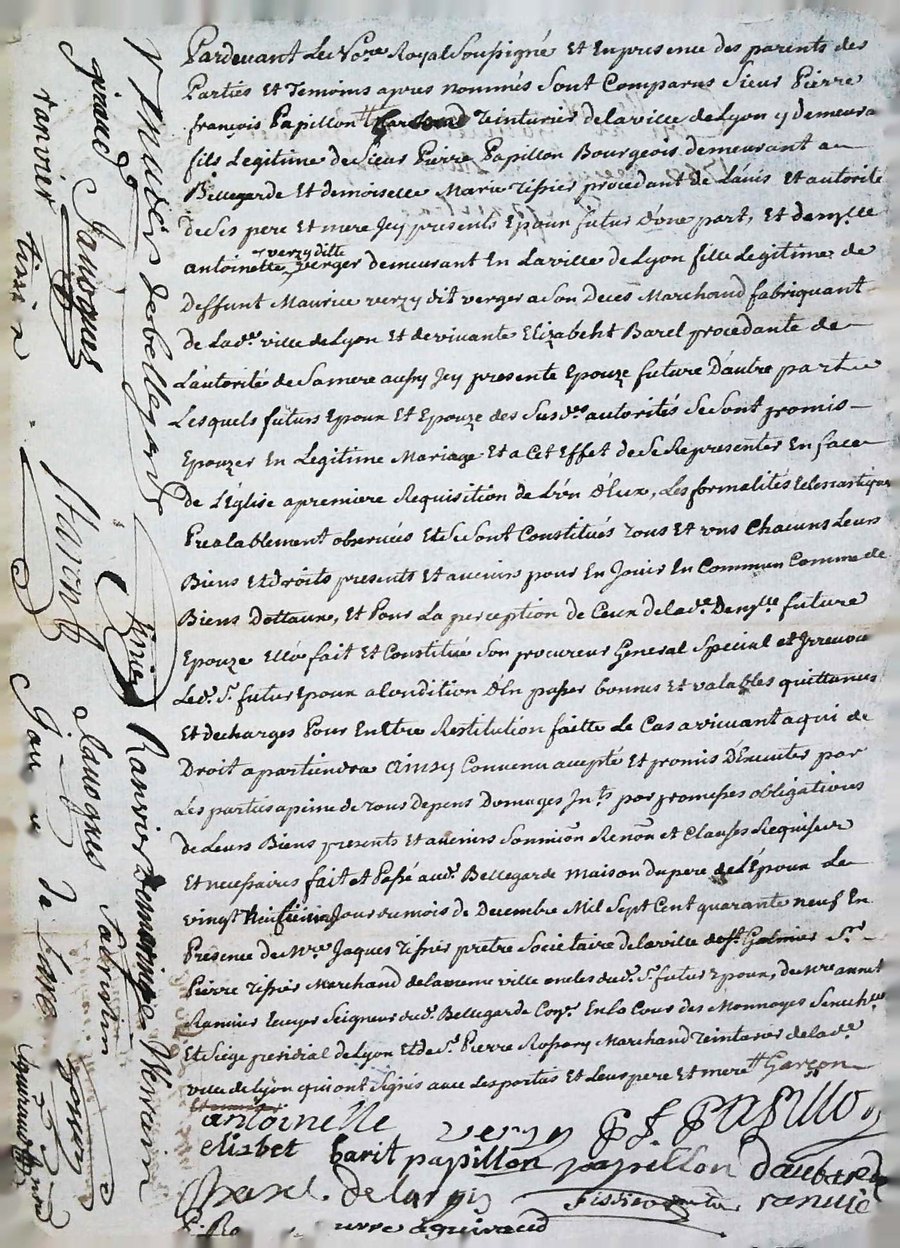 Pardevant Le No.re Royal Soussigné Et En presence des parents des
Parties Et Temoins apres nommés Sont Comparus Sieur Pierre
françois Papillon Teinturier de la ville de Lyon y demeura
fils Legitime de Sieur Pierre Papillon Bourgeois demeurant au
Bellegarde Et demoiselle Marie Tissier procedant de L'avis Et autorité
de Ses pere Et mere Jcy presents Epoux futur D'une part, Et dem.lle
verzy ditte
antoinette verger demeurant En La ville de Lyon fille Legitime de
Deffunt Maurice verzy dit verger a Son Deces Marchand fabriquant
de Lad.te ville de Lyon Et de vivante Elizabeht Barel procedante de
L'autorité de Sa mere aussy Jcy presente Epouze future D'autre part
Lesquels futurs Epoux Et Epouze des Susd.es autorités Se Sont promis
Epouzer En Legitime Mariage Et a Cet Effet de Se Representer En face
de L'Eglise a premiere Requisition de L'un D'eux, Les formalités Eclesiastiques
Prealablement observées Et Se Sont Constitués Tous Et vns Chacuns Leurs
Biens Et Droits presents Et avenirs pour En Jouir En Commun Comme de
Biens Dottaux, Et Pour La perception de Ceux de lad.e Dem.lle future
Epouze Elle fait Et Constitué Son procureur General Special et Jrrevoca
Led. S.r futur Epoux a Condition D'En passer bonnes Et valables quittances
Et decharges Pour En Etre Restitution faitte Le Cas arrivant a qui de
Droit apartiendra ainsy Convenu accepté Et promis D'Executer par
Les parties a peine de Tous Depens Domages Jn.ts par promesses obligations
de Leurs Biens presents Et avenirs Soumion Renon et Clauses Requises
Et necessaires fait et Passé aud. Bellegarde maison du pere de L'Epoux Le
vingt Jour du mois de Decembre Mil Sept Cent quarante neuf En
Presence de M.re Jaques Tissier pretre Societaire de la ville de St. Galmier S.r
Pierre Tissier Marchand de la meme ville oncles dud. S.r futur Epoux, de M.re annet
Ranvier Ecuyer Seigneur dud. Bellegarde Con.er En la Cour des Monnoyes Senech.ée
Et Siege presidial de Lyon Et de S.r Pierre Marchand Teinturier de lad.e
ville de Lyon qui ont Signés avec Les parties Et Leurs pere Et mere Garçon
antoinelle verzy P. f. Papillon
elizbet barit papillon papillon Daubard
Barel
aguiraud
Ranvier de bellegarde
giraud Janoques
ranvier tissier